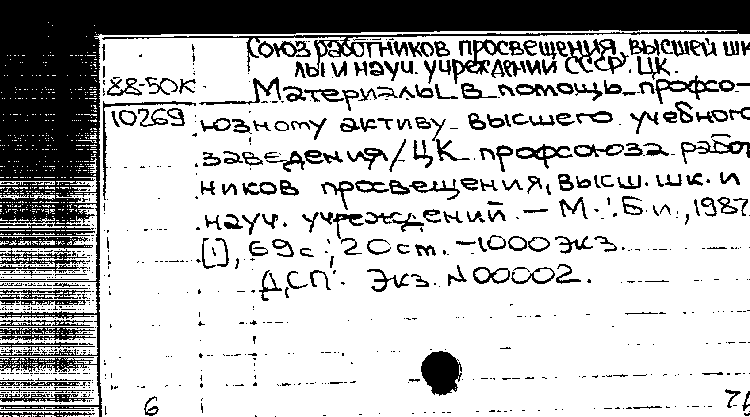 Союз работников просвещения, высшей шк
лы и науч. учреждений СССР. ЦК.
88-50К Материалы в помощь профсо-
10269 юзному активу высшего учебного
заведения / ЦК профсоюза работ
ников просвещения, высш. шк. и
науч. учреждений. — М. : Б. и., 1987
[1], 69 с.; 20 см. — 1000 экз.
ДСП. Экз. N 00002.
6